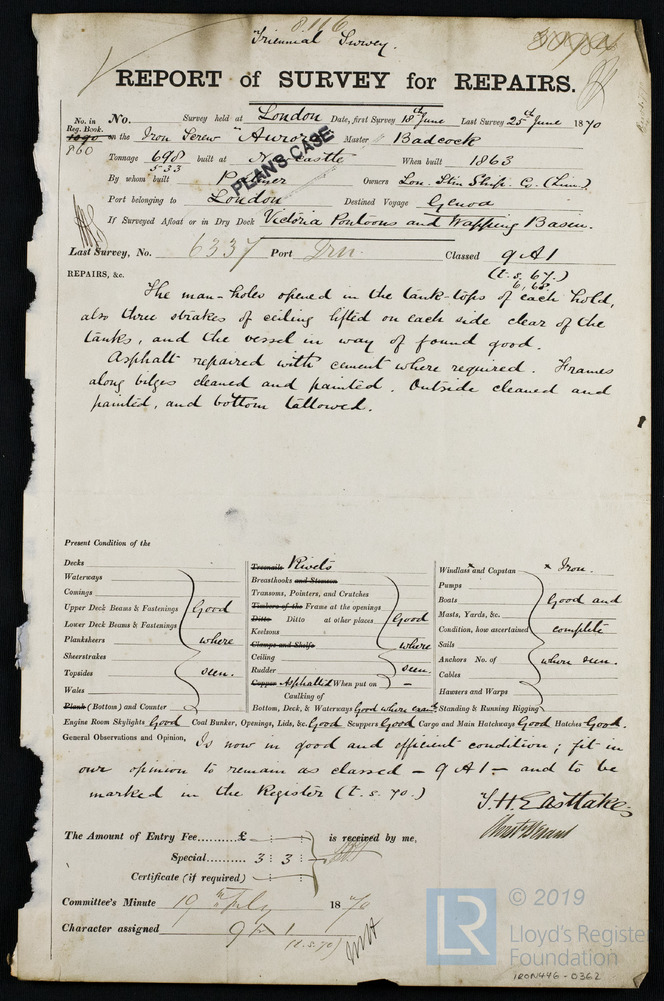 Triennial Survey.
REPORT of SURVEY for REPAIRS.
No. in Reg. Book. No. Survey held at London Date, first Survey 18th June Last Survey 25th June 1870
1090 on the Iron Screw "Aurora" Master Badcock
860
Tonnage 698 built at Newcastle When built 1863
533
PLANS CASE
By whom built Palmer Owners Lon. Stm Ship. Co. (Lim)
Port belonging to London Destined Voyage Genoa
If Surveyed Afloat or in Dry Dock Victoria Pontoons and Wapping Basin.
Last Survey, No. 6337 Port Classed 9 A 1
(t.s. 67.)
6,68.
REPAIRS, &c.
The man-holes opened in the tank-tops of each hold,
also three strakes of ceiling lifted on each side clear of the
tanks, and the vessel in way of found good.
Asphalt repaired with cement where required. Frames
along bilges cleaned and painted. Outside cleaned and
painted, and bottom tallowed.
Present Condition of the
Decks
Waterways
Comings
Upper Deck Beams & Fastenings
Lower Deck Beams & Fastenings
Planksheers
Sheerstrakes
Topsides
Wales
Plank (Bottom) and Counter
Good
where
seen.
Treenails Rivets
Breasthooks and Stemson
Transoms, Pointers, and Crutches
Timbers of the Frame at the openings
Ditto Ditto at other places
Keelsons
Clamps and Shelfs
Ceiling
Rudder
Good
where
seen.
Copper Asphalted When put on –
Caulking of
Bottom, Deck, & Waterways Good where examd
Windlass x and Capstan x Iron.
Pumps
Boats
Masts, Yards, &c.
Condition, how ascertained
Sails
Anchors No. of
Cables
Hawsers and Warps
Standing & Running Rigging
Good and
complete
when seen.
Engine Room Skylights Good Coal Bunker, Openings, Lids, &c. Good Scuppers Good Cargo and Main Hatchways Good Hatches Good.
General Observations and Opinion, Is now in good and efficient condition; fit in
our opinion to remain as classed – 9 A 1 – and to be
marked in the Register (t.s. 70.)
T. H. Easttake
The Amount of Entry Fee......... £ : : is received by me,
Special......... 3 : 3 :
Certificate (if required) : :
Committee's Minute 19th July 1870
Character assigned 9 A 1
(t.s.70)
LR
© 2019
Lloyd's Register
Foundation
IRON446-0362